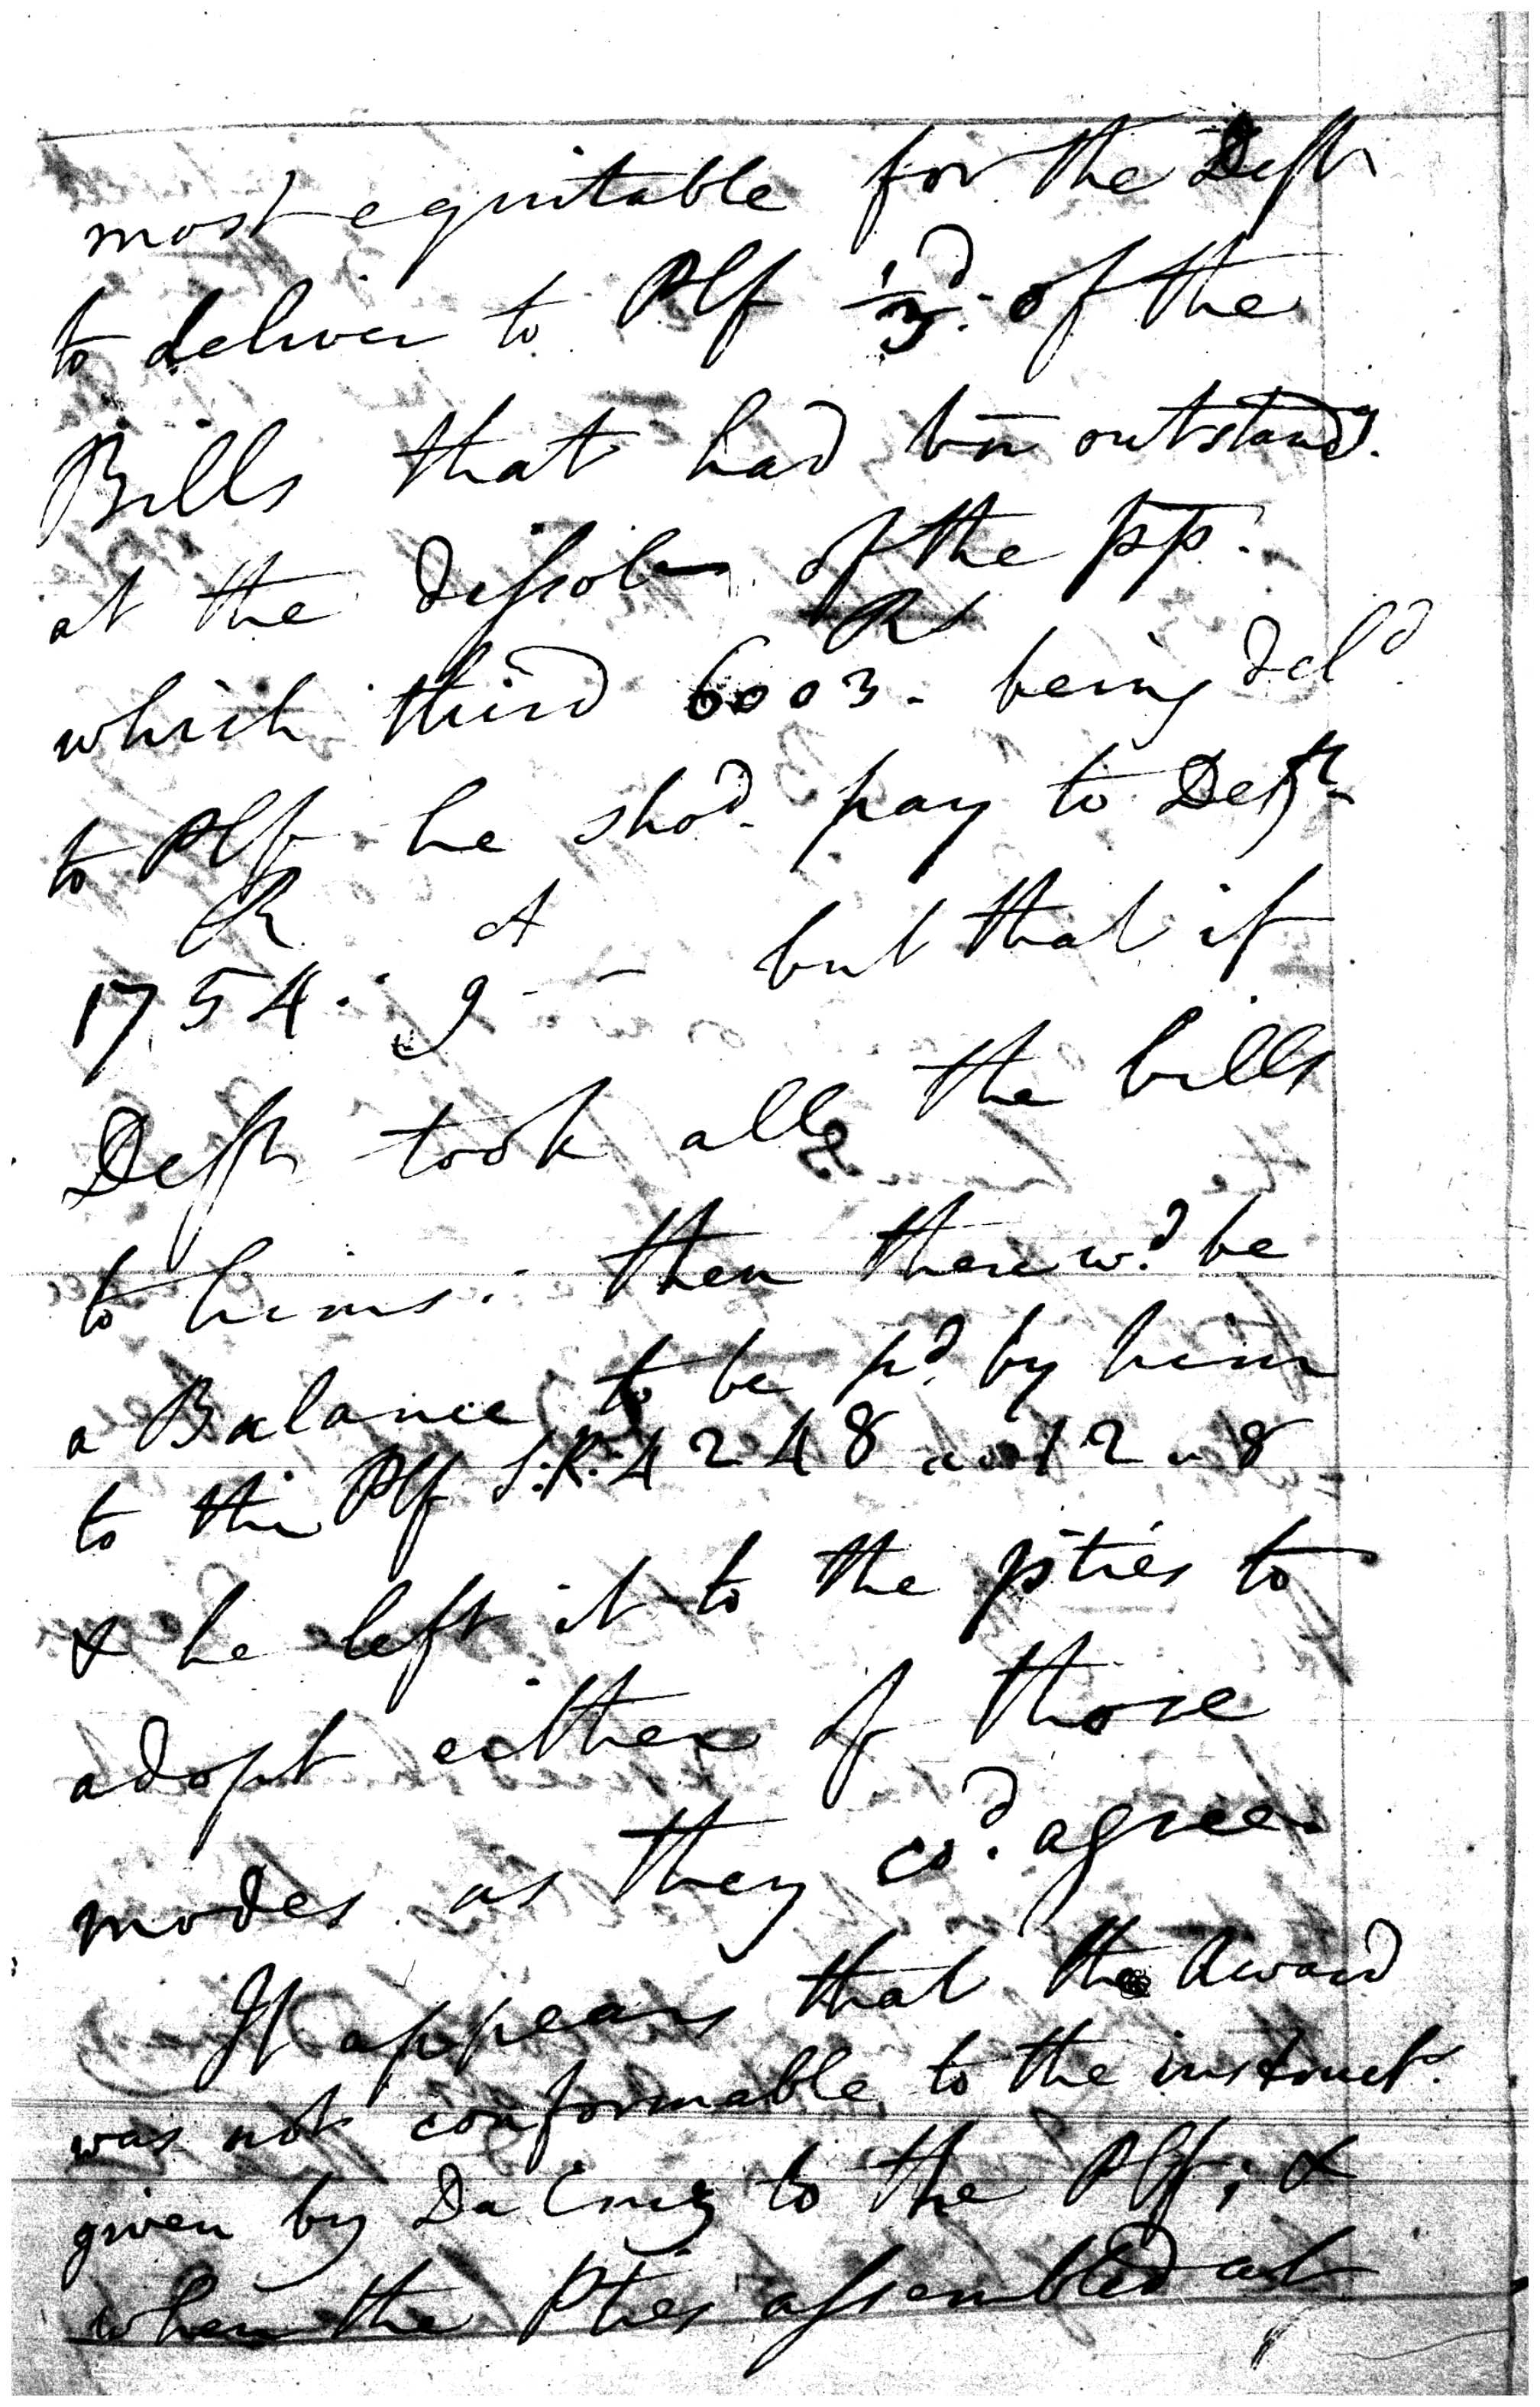 most equitable for the Deft
to deliver to Plf 1/3d. of the
Bills that had bn outstandg.
at the dissoln. of the pp.
which third 6003 Rs. being deld.
to Plf he shod. pay to Deft
R A
1754 : 9 - - but that if
Deft took all the bills
to hims. then there wd. be
a Balance to be pd. by him
to the Plf S.R. 4248 " 12 " 8
& he left it to the pties to
adopt either of those
modes as they cod. agree
It appears that the Award
was not conformable to the instructs.
given by Da Cruz to the Plff; &
when the Pties assembled at